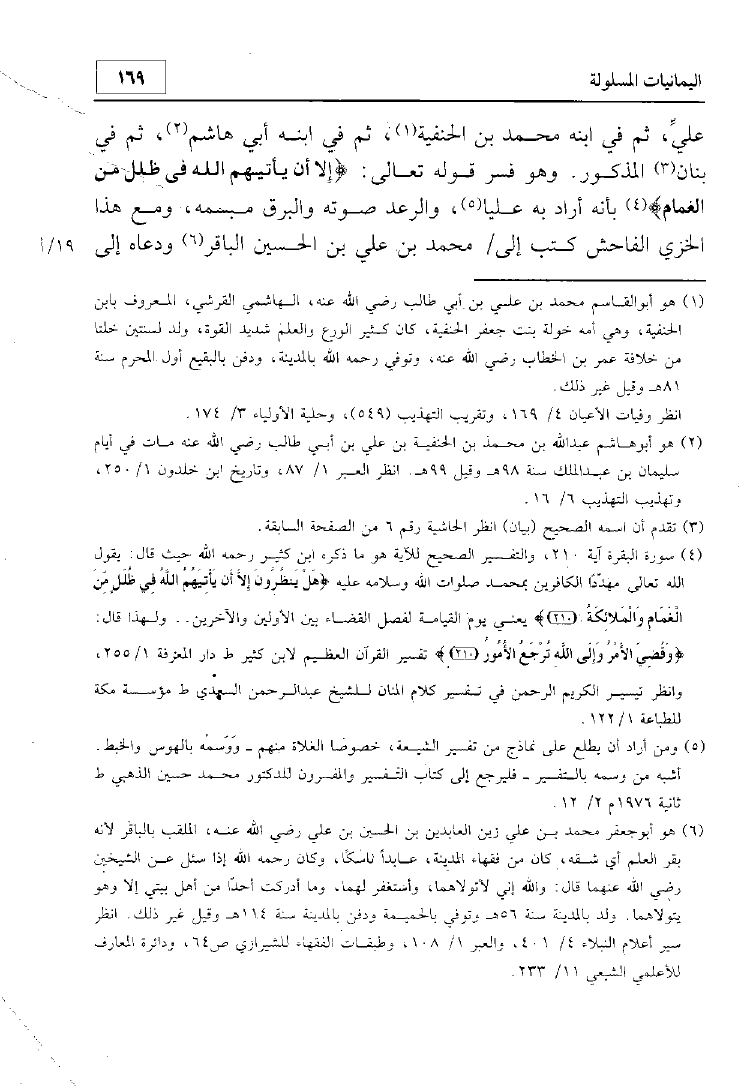 اليمانيات المسلولة
١٦٩
عليّ، ثم في ابنه محمد بن الحنفية(١)، ثم في ابنه أبي هاشم(٢)، ثم في
بنان(٣) المذكور. وهو فسر قوله تعالى: ﴿إلا أن يأتيهم الله في ظلل من
الغمام﴾(٤) بأنه أراد به عليا(٥)، والرعد صوته والبرق مبسمه، ومع هذا
الخزي الفاحش كتب إلى/ محمد بن علي بن الحسين الباقر(٦) ودعاه إلى
١٩/أ
(١) هو أبوالقاسم محمد بن علي بن أبي طالب رضي الله عنه، الهاشمي القرشي، المعروف بابن
الحنفية، وهي أمه خولة بنت جعفر الحنفية، كان كثير الورع والعلم شديد القوة، ولد لسنتين خلتا
من خلافة عمر بن الخطاب رضي الله عنه، وتوفي رحمه الله بالمدينة، ودفن بالبقيع أول المحرم سنة
٨١هـ وقيل غير ذلك.
انظر وفيات الأعيان ٤/ ١٦٩، وتقريب التهذيب (٥٤٩)، وحلية الأولياء ٣/ ١٧٤.
(٢) هو أبوهاشم عبدالله بن محمد بن الحنفية بن علي بن أبي طالب رضي الله عنه مات في أيام
سليمان بن عبدالملك سنة ٩٨هـ وقيل ٩٩هـ. انظر العبر ١/ ٨٧، وتاريخ ابن خلدون ١/ ٢٥٠،
وتهذيب التهذيب ٦/ ١٦.
(٣) تقدم أن اسمه الصحيح (بيان) انظر الحاشية رقم ٦ من الصفحة السابقة.
(٤) سورة البقرة آية ٢١٠، والتفسير الصحيح للآية هو ما ذكره ابن كثير رحمه الله حيث قال: يقول
الله تعالى مهدّدًا الكافرين بمحمد صلوات الله وسلامه عليه ﴿هَلْ يَنظُرُونَ إِلاَّ أَن يَأْتِيَهُمُ اللَّهُ فِي ظُلَلٍ مِّنَ
الْغَمَامِ وَالْمَلائِكَةُ (٢١٠)﴾ يعني يوم القيامة لفصل القضاء بين الأولين والآخرين.. ولهذا قال:
﴿وَقُضِيَ الأَمْرُ وَإِلَى اللَّهِ تُرْجَعُ الأُمُورُ (٢١٠)﴾ تفسير القرآن العظيم لابن كثير ط دار المعرفة ١/ ٢٥٥،
وانظر تيسير الكريم الرحمن في تفسير كلام المنان للشيخ عبدالرحمن السعدي ط مؤسسة مكة
للطباعة ١/ ١٢٢.
(٥) ومن أراد أن يطلع على نماذج من تفسير الشيعة، خصوصًا الغلاة منهم ـ وَوَسَمُه بالهوس والخبط.
أشبه من وسمه بالتفسير ـ فليرجع إلى كتاب التفسير والمفسرون للدكتور محمد حسين الذهبي ط
ثانية ١٩٧٦م ٢/ ١٢.
(٦) هو أبوجعفر محمد بن علي زين العابدين بن الحسين بن علي رضي الله عنه، الملقب بالباقر لأنه
بقر العلم أي شقه، كان من فقهاء المدينة، عابداً ناسكًا، وكان رحمه الله إذا سئل عن الشيخين
رضي الله عنهما قال: والله إني لأتولاهما، وأستغفر لهما، وما أدركت أحدًا من أهل بيتي إلا وهو
يتولاهما. ولد بالمدينة سنة ٥٦هـ وتوفي بالحميمة ودفن بالمدينة سنة ١١٤هـ وقيل غير ذلك. انظر
سير أعلام النبلاء ٤/ ٤٠١، والعبر ١/ ١٠٨، وطبقات الفقهاء للشيرازي ص٦٤، ودائرة المعارف
للأعلمي الشيعي ١١/ ٢٣٣.